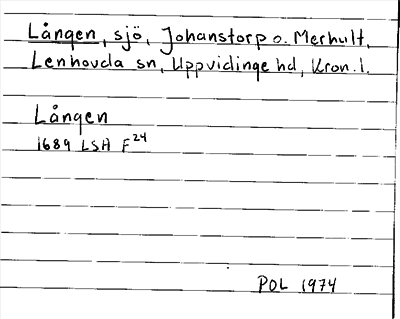 Lången, sjö, Johanstorp o. Merhult,
Lenhovda sn, Uppvidinge hd, Kron. l.
Lången
1689 LSA F24
POL 1974